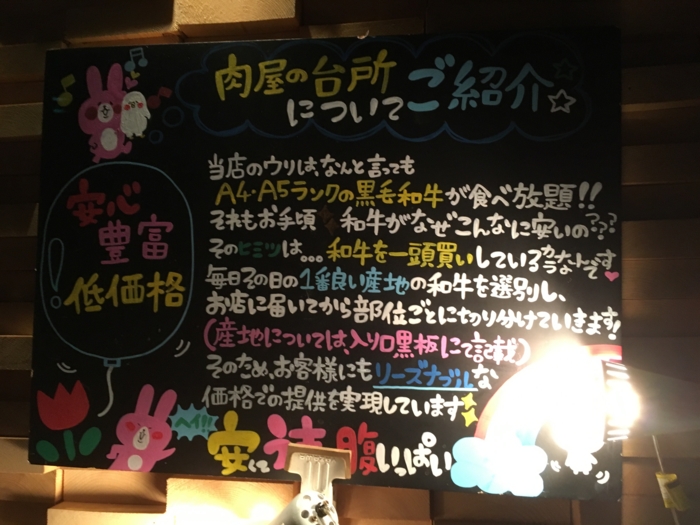 肉屋の台所
についてご紹介
当店のウリは、なんと言っても
A4・A5ランクの黒毛和牛が食べ放題!!
それもお手頃 和牛がなぜこんなに安いの???
そのヒミツは…和牛を一頭買いしているカラなんです
毎日その日の1番良い産地の和牛を選別し、
お店に届いてから部位ごとに切り分けていきます!
(産地については、入り口黒板にて記載)
そのため、お客様にもリーズナブルな
価格での提供を実現しています
安心
豊富
低価格
!
ヘイ!!
安くて 腹いっぱい